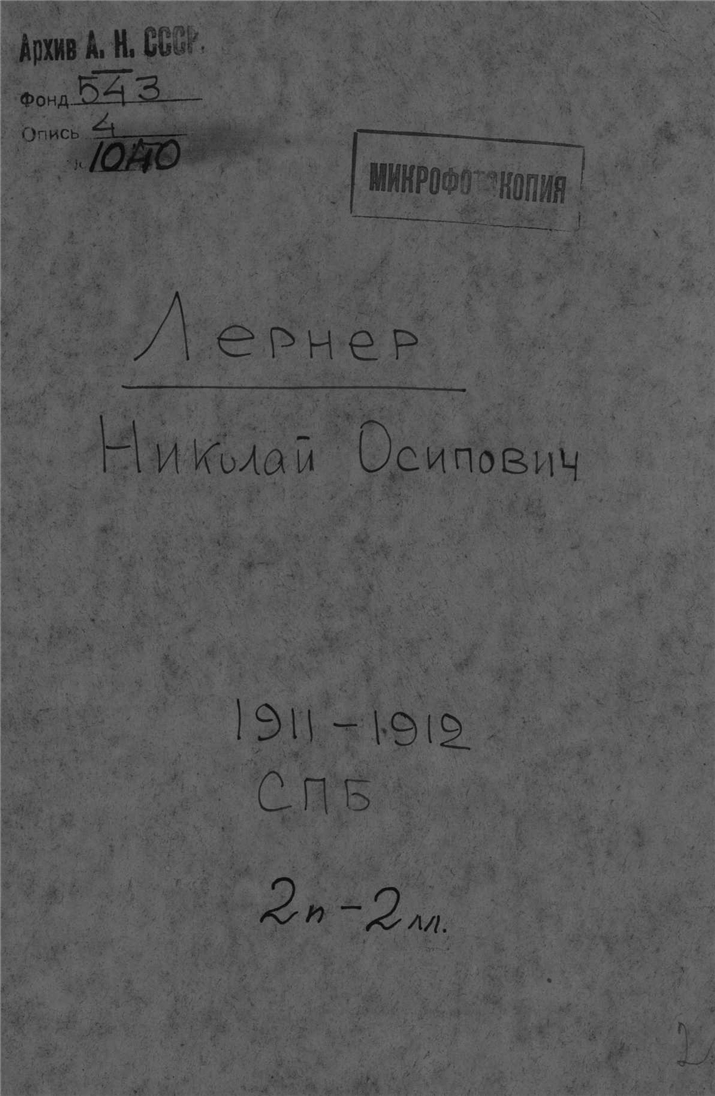 Архив А. Н. СССР.
Фонд 543
Опись 4
№ 1040
МИКРОФОТОКОПИЯ
Лернер
Николай Осипович
1911-1912
СПБ
2п-2лл.
2